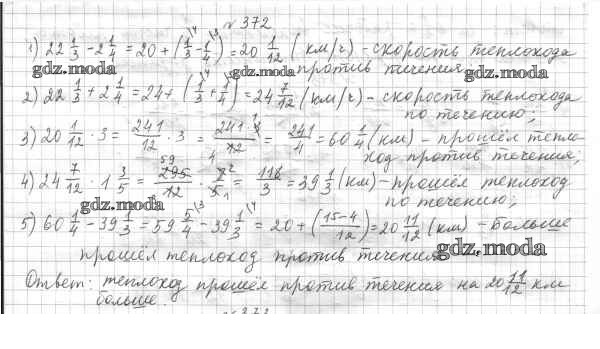 № 372
1) 22 1/3 - 2 1/4 = 20 + (1/3 - 1/4) = 20 1/12 (км/ч) - скорость теплохода
gdz.moda против течения gdz.moda
2) 22 1/3 + 2 1/4 = 24 + (1/3 + 1/4) = 24 7/12 (км/ч) - скорость теплохода
gdz.moda
по течению;
3) 20 1/12 · 3 = 241/12 · 3 = 241·1/12 4 = 241/4 = 60 1/4 (км) - прошёл тепло-
ход против течения;
4) 24 7/12 · 1 3/5 = 295/12 · 8/5 = 118/3 = 39 1/3 (км) - прошёл теплоход
gdz.moda по течению;
5) 60 1/4 - 39 1/3 = 59 5/4 - 39 1/3 = 20 + (15-4/12) = 20 11/12 (км) - больше
прошёл теплоход против течения
gdz.moda
Ответ: теплоход прошёл против течения на 20 11/12 км
больше.